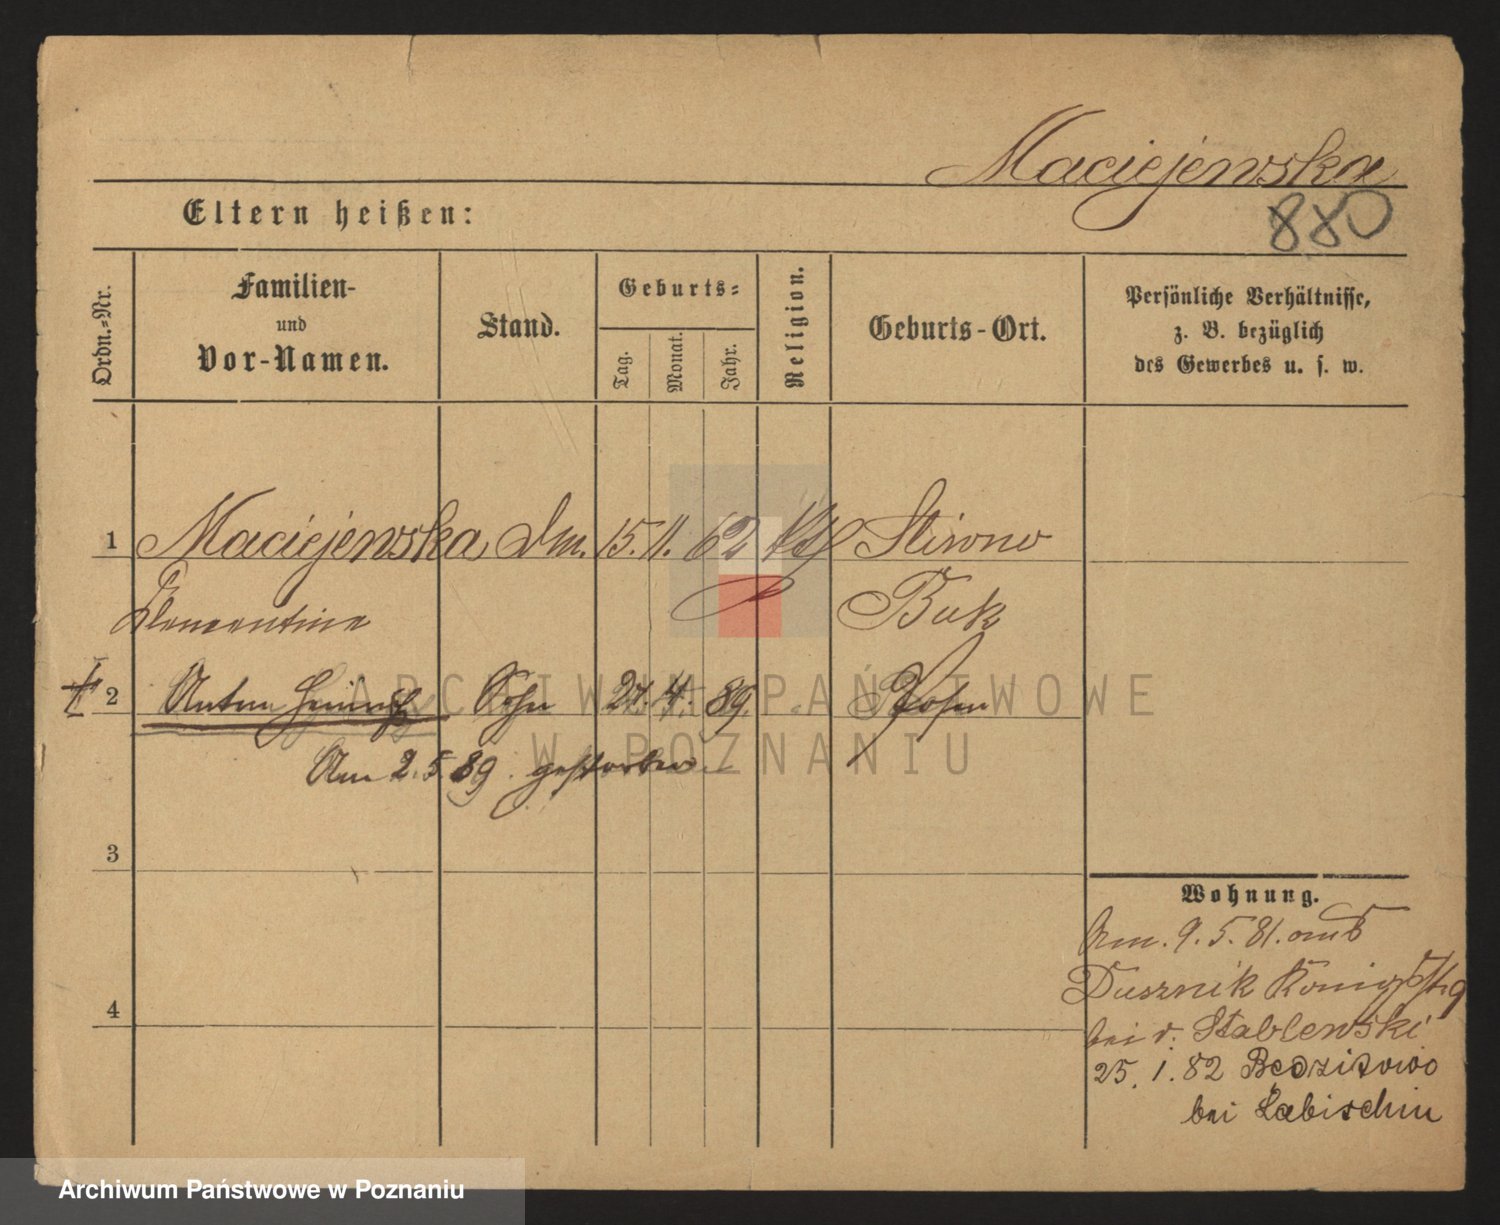 Maciejewska
880
Eltern heißen:
Ordn.-Nr.
Familien-
und
Vor-Namen.
Stand.
Geburts-
Tag.
Monat.
Jahr.
Religion.
Geburts-Ort.
Persönliche Verhältnisse,
z. B. bezüglich
des Gewerbes u. s. w.
1 Maciejewska Dm. 15. 11. 62 kth
Klementine Buk
† 2 Anton Heinrich Sohn 21. 4. 89. Posen
Am 2.5.89. gestorben
3
4
Wohnung.
Am. 9. 5. 81. aus
Dusznik Königsstr. 9
bei v. Stablewski
25. 1. 82
bei Labischin
ARCHIWUM PAŃSTWOWE
W POZNANIU
Archiwum Państwowe w Poznaniu